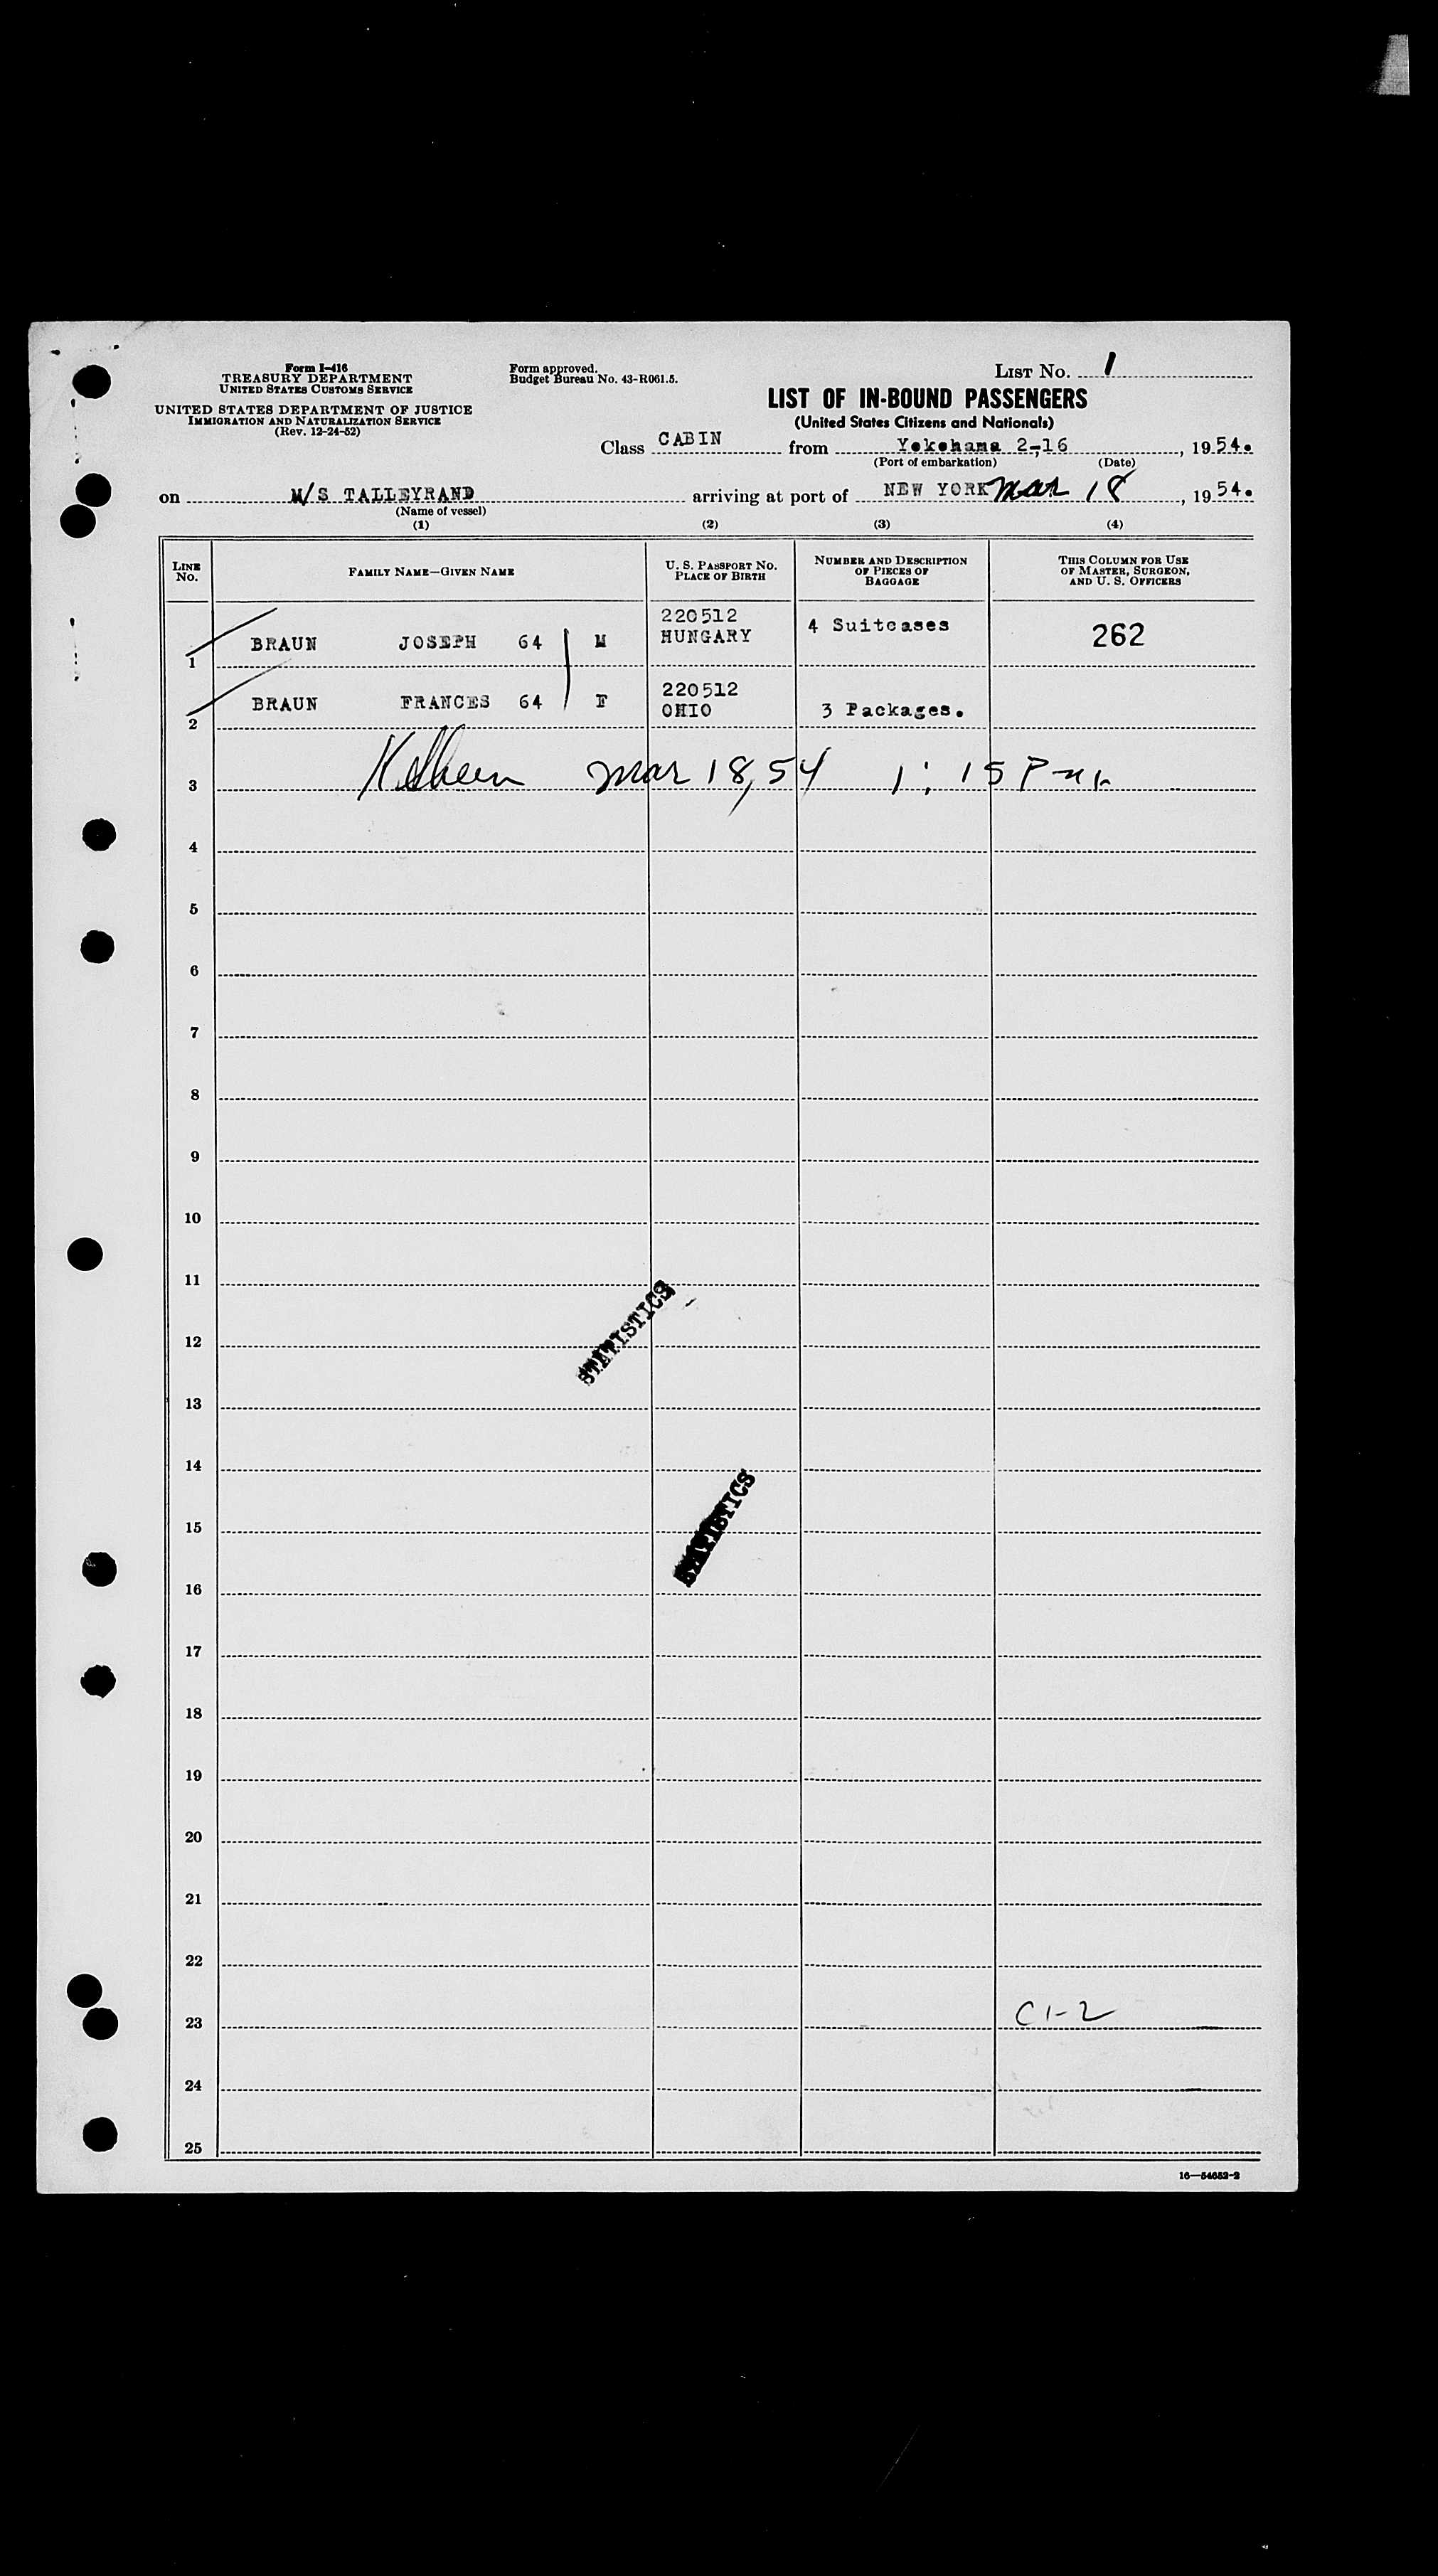 Form I-416
TREASURY DEPARTMENT
UNITED STATES CUSTOMS SERVICE
UNITED STATES DEPARTMENT OF JUSTICE
IMMIGRATION AND NATURALIZATION SERVICE
(Rev. 12-24-52)
Form approved.
Budget Bureau No. 43-R061.5.
LIST NO. 1
LIST OF IN-BOUND PASSENGERS
(United States Citizens and Nationals)
Class CABIN from Yokohama 2-16, 1954.
(Port of embarkation) (Date)
on M/S TALLEYRAND arriving at port of NEW YORK Mar 18, 1954.
(Name of vessel)
(1) (2) (3) (4)
LINE NO. FAMILY NAME—GIVEN NAME U. S. PASSPORT NO. PLACE OF BIRTH NUMBER AND DESCRIPTION OF PIECES OF BAGGAGE THIS COLUMN FOR USE OF MASTER, SURGEON, AND U. S. OFFICERS
1 BRAUN JOSEPH 64 M 220512 HUNGARY 4 Suitcases 262
2 BRAUN FRANCES 64 F 220512 OHIO 3 Packages.
3 Mar 18, 54 1:15 Pm
4
5
6
7
8
9
10
11
STATISTICS
12
13
14
STATISTICS
15
16
17
18
19
20
21
22
23 C1-2
24
25
16—54652-2